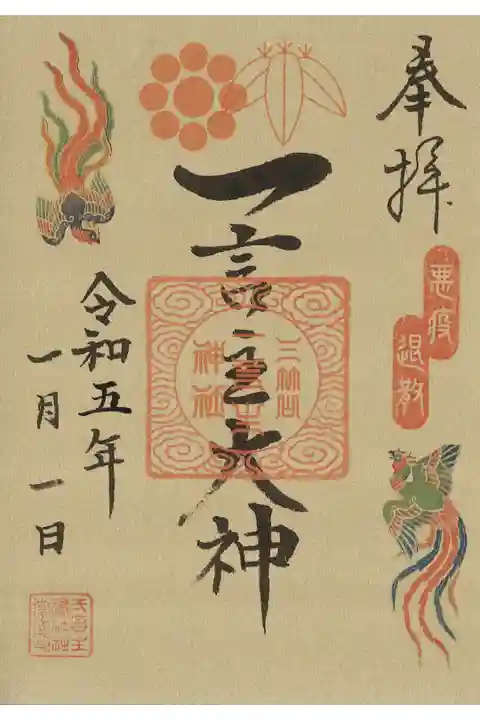 奉拝
悪疫
退散
一言主大神
一言主
神社
令和五年
一月一日